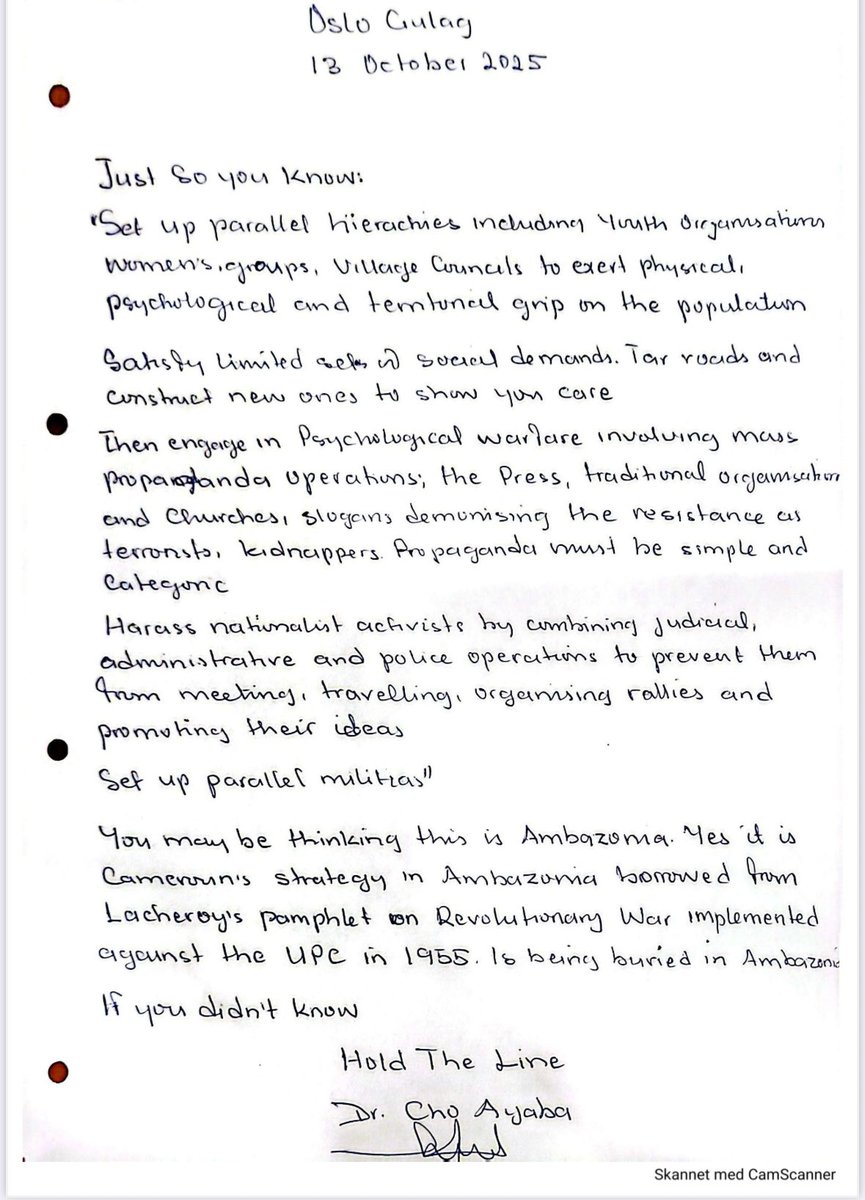 Oslo Gulag
13 October 2025
Just So you know:
"Set up parallel hierachies including Youth Organisations
women's, groups, Village Councils to exert physical,
psychological and territorial grip on the population
Satisfy limited social demands. Tar roads and
construct new ones to show you care
Then engage in Psychological warfare involving mass
propaganda operations; the Press, traditional organisation
and Churches, slogans demonising the resistance as
terrorists, kidnappers. Propaganda must be simple and
Categoric
Harass nationalist activists by combining judicial,
administrative and police operations to prevent them
from meeting, travelling, organising rallies and
promoting their ideas
Set up parallel militias"
You may be thinking this is Ambazonia. Yes it is
Cameroun's strategy in Ambazonia borrowed from
Lacheroy's pamphlet on Revolutionary War implemented
against the UPC in 1955. Is being buried in Ambazonia
If you didn't know
Hold The Line
Dr. Cho Ayaba
Skannet med CamScanner